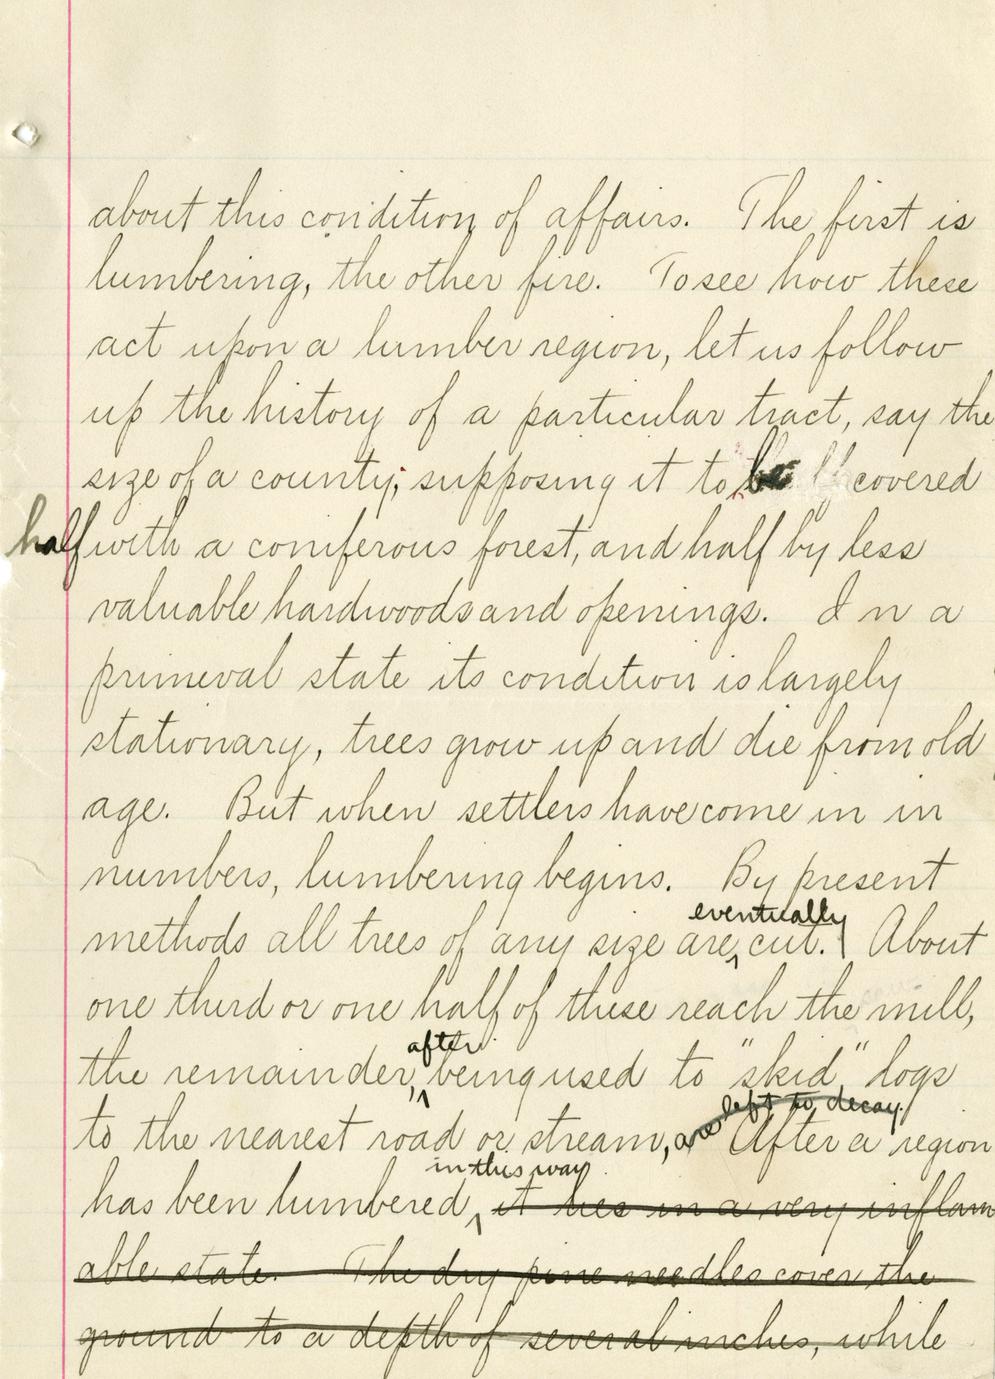 about this condition of affairs. The first is
lumbering, the other fire. To see how these
act upon a lumber region, let us follow
up the history of a particular tract, say the
size of a county; supposing it to be covered
half with a coniferous forest, and half by less
valuable hardwoods and openings. In a
primeval state its condition is largely
stationary, trees grow up and die from old
age. But when settlers have come in in
numbers, lumbering begins. By present
eventually
methods all trees of any size are cut. About
one third or one half of these reach the mill,
after
the remainder, being used to "skid" logs
left to decay.
to the nearest road or stream, are After a region
in this way
has been lumbered, it lies in a very inflam
able state. The dry pine needles cover the
ground to a depth of several inches, while